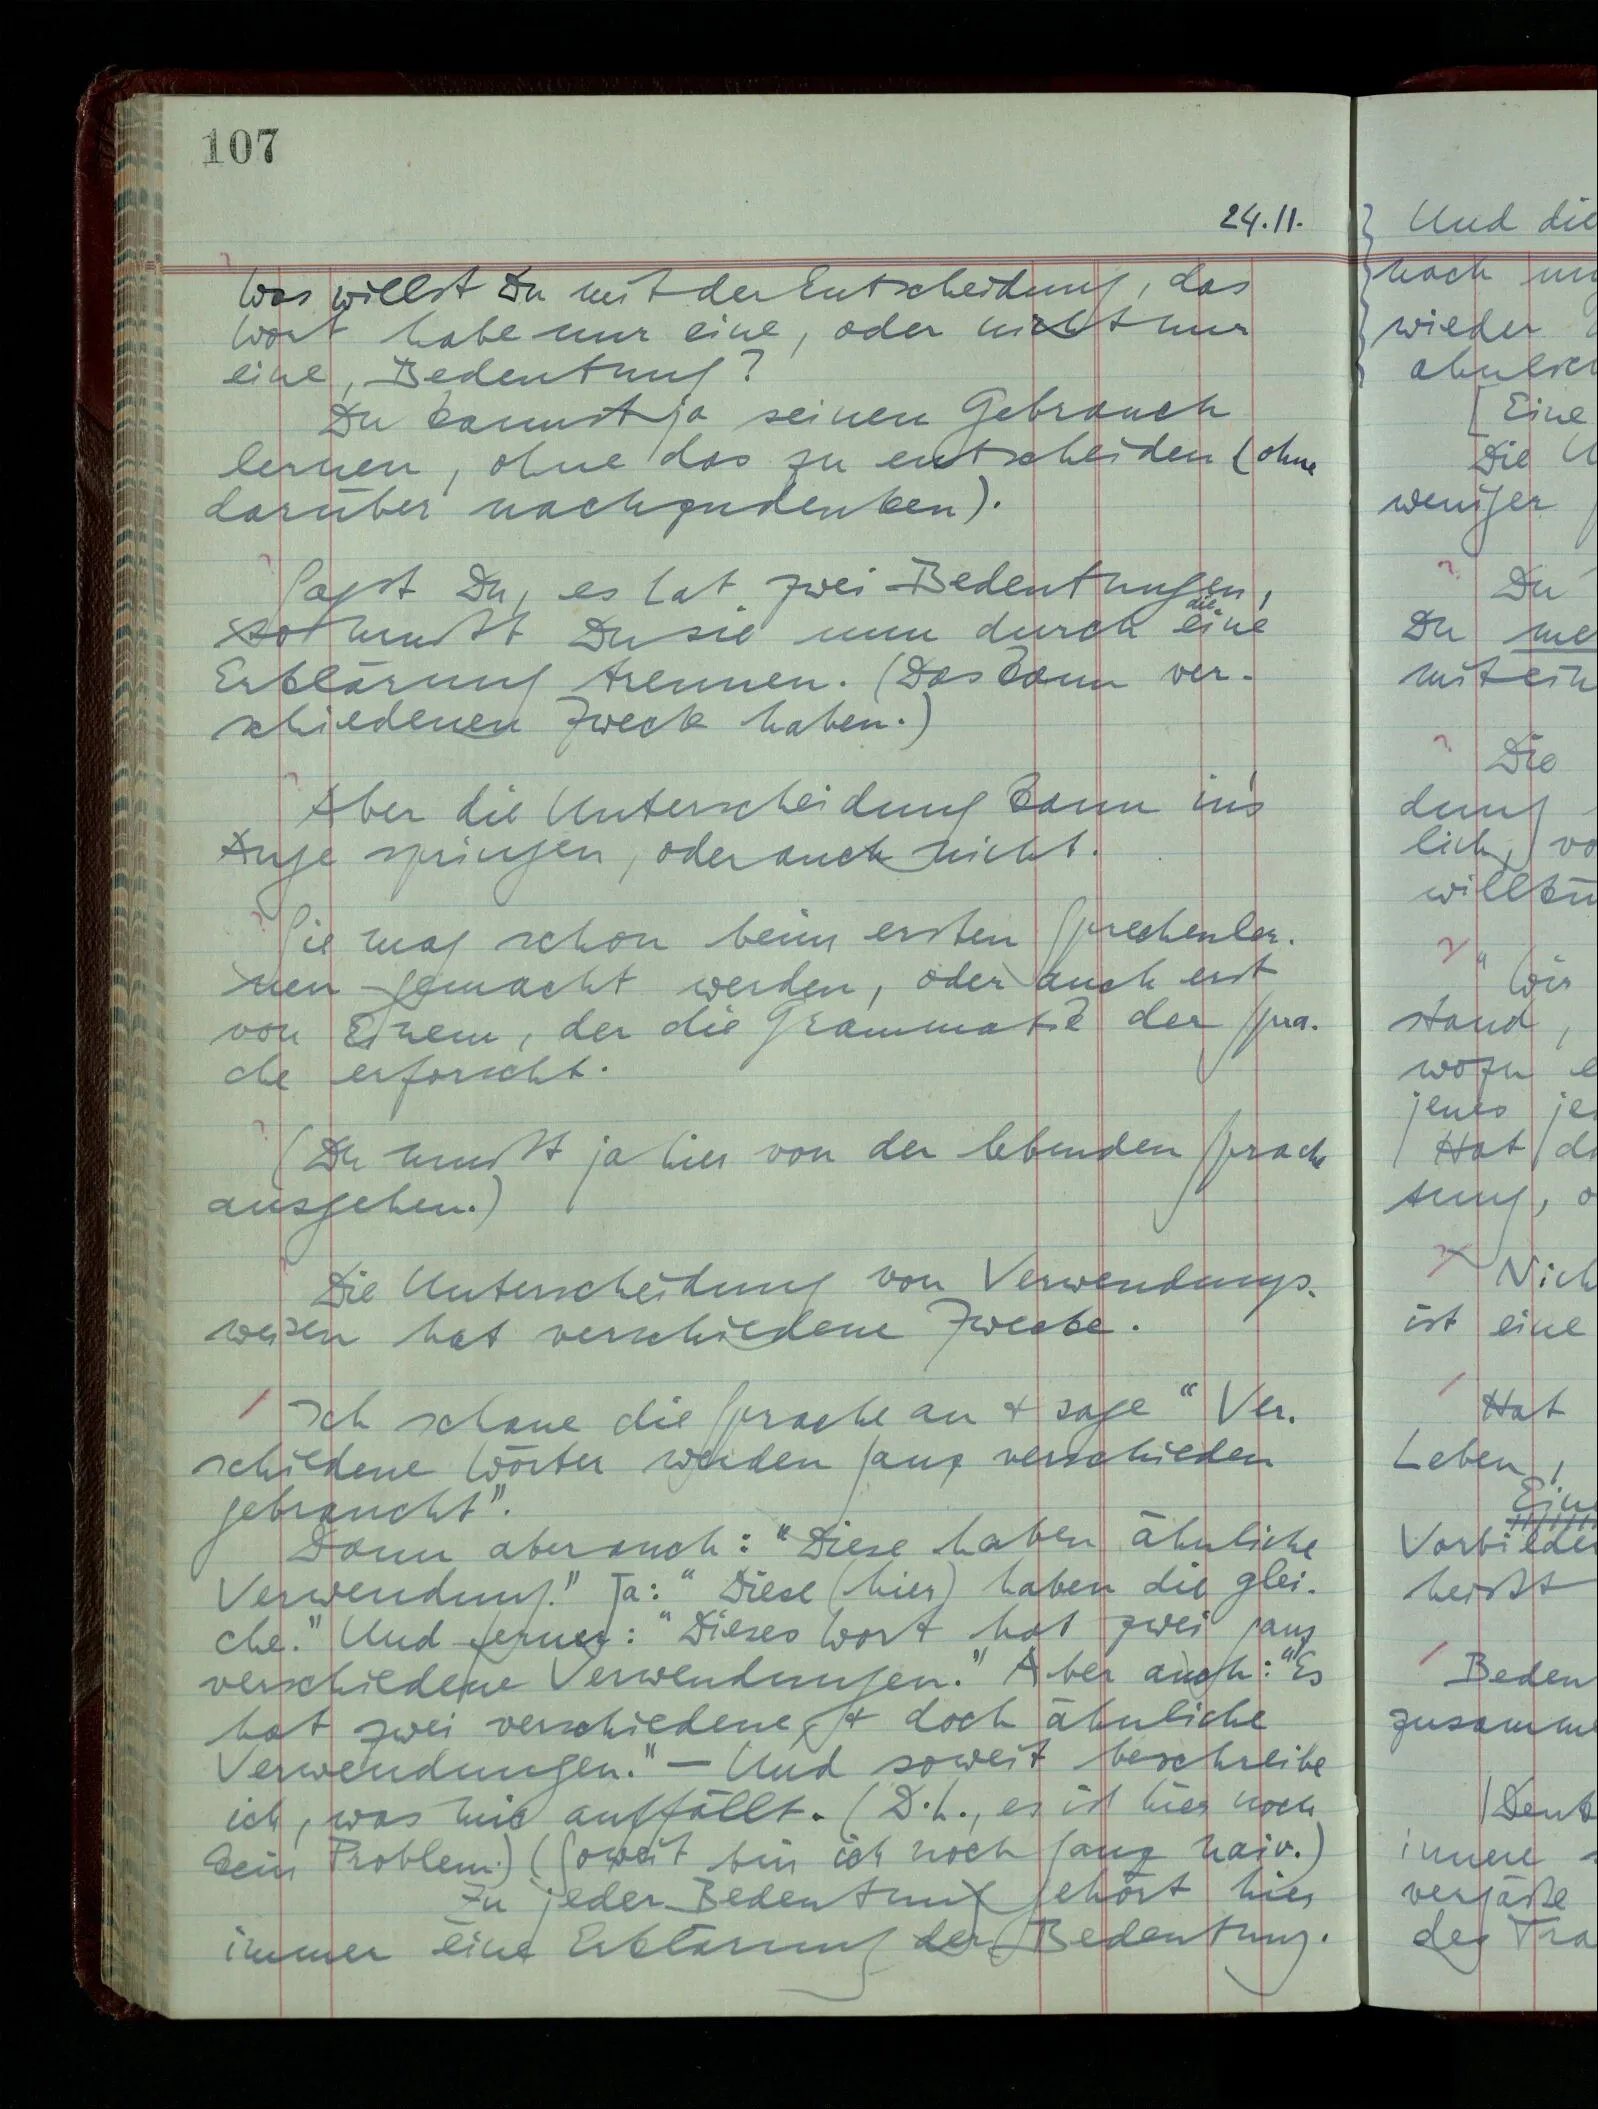 107
24.11.
Was willst Du mit der Entscheidung, das
Wort habe nur eine, oder nicht nur
eine, Bedeutung?
Du kannst ja seinen Gebrauch
lernen, ohne das zu entscheiden (ohne
darüber nachzudenken).
Sagst Du, es hat zwei Bedeutungen,
so mußt Du sie nun durch eine
die
Erklärung trennen. (Das kann ver-
schiedenen Zweck haben.)
Aber die Unterscheidung kann in's
Auge springen, oder auch nicht.
Sie mag schon beim ersten Sprechenler-
nen gemacht werden, oder auch erst
von Einem, der die Grammatik der Spra-
che erforscht.
(Du mußt ja hier von der lebenden Sprache
ausgehen.)
Die Unterscheidung von Verwendungs-
weisen hat verschiedene Zwecke.
Ich schaue die Sprache an & sage “Ver-
schiedene Wörter werden ganz verschieden
gebraucht”.
Dann aber auch: “Diese haben ähnliche
Verwendung.” Ja: “Diese (hier) haben die glei-
che.” Und ferner: “Dieses Wort hat zwei ganz
verschiedene Verwendungen.” Aber auch: “Es
hat zwei verschiedene, & doch ähnliche
Verwendungen.” – Und soweit beschreibe
ich, was mir auffällt. (D.h., es ist hier noch
kein Problem.) (Soweit bin ich noch ganz naiv.)
Zu jeder Bedeutung gehört hier
immer eine Erklärung der Bedeutung.
Und die
noch
wieder
ähnlich
[Eine
Die
weniger
Du
Du
mitein
Die
dung
lich,
willkü
“Wir
stand,
wozu
jenes
Hat
tung,
Nich
ist eine
Hat
Leben,
Eine
Vorbilder
heißt
Bedeu
zusamme
Denk
innere
vergäße
des Tra